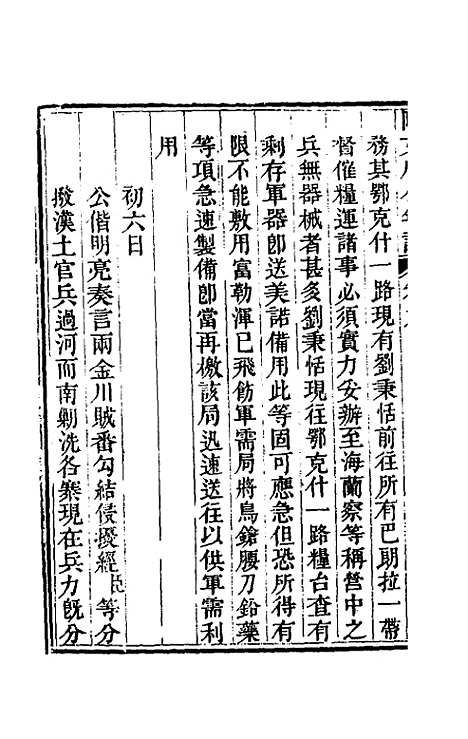 務其鄂克什一路現有劉秉恬前往所有巴朗拉一帶
督催糧運諸事必須實力妥辦至海蘭察等稱營中之
兵無器械者甚多劉秉恬現往鄂克什一路糧台查有
剩存軍器卽送美諾備用此等固可應急但恐所得有
限不能敷用富勒渾已飛飭軍需局將鳥鎗腰刀鉛藥
等項急速製備卽當再檄該局迅速送往以供軍需利
用
初六日
公偕明亮奏言兩金川賊番勾結侵擾經臣等分
撥漢土官兵過河而南剿洗各寨現在兵力旣分